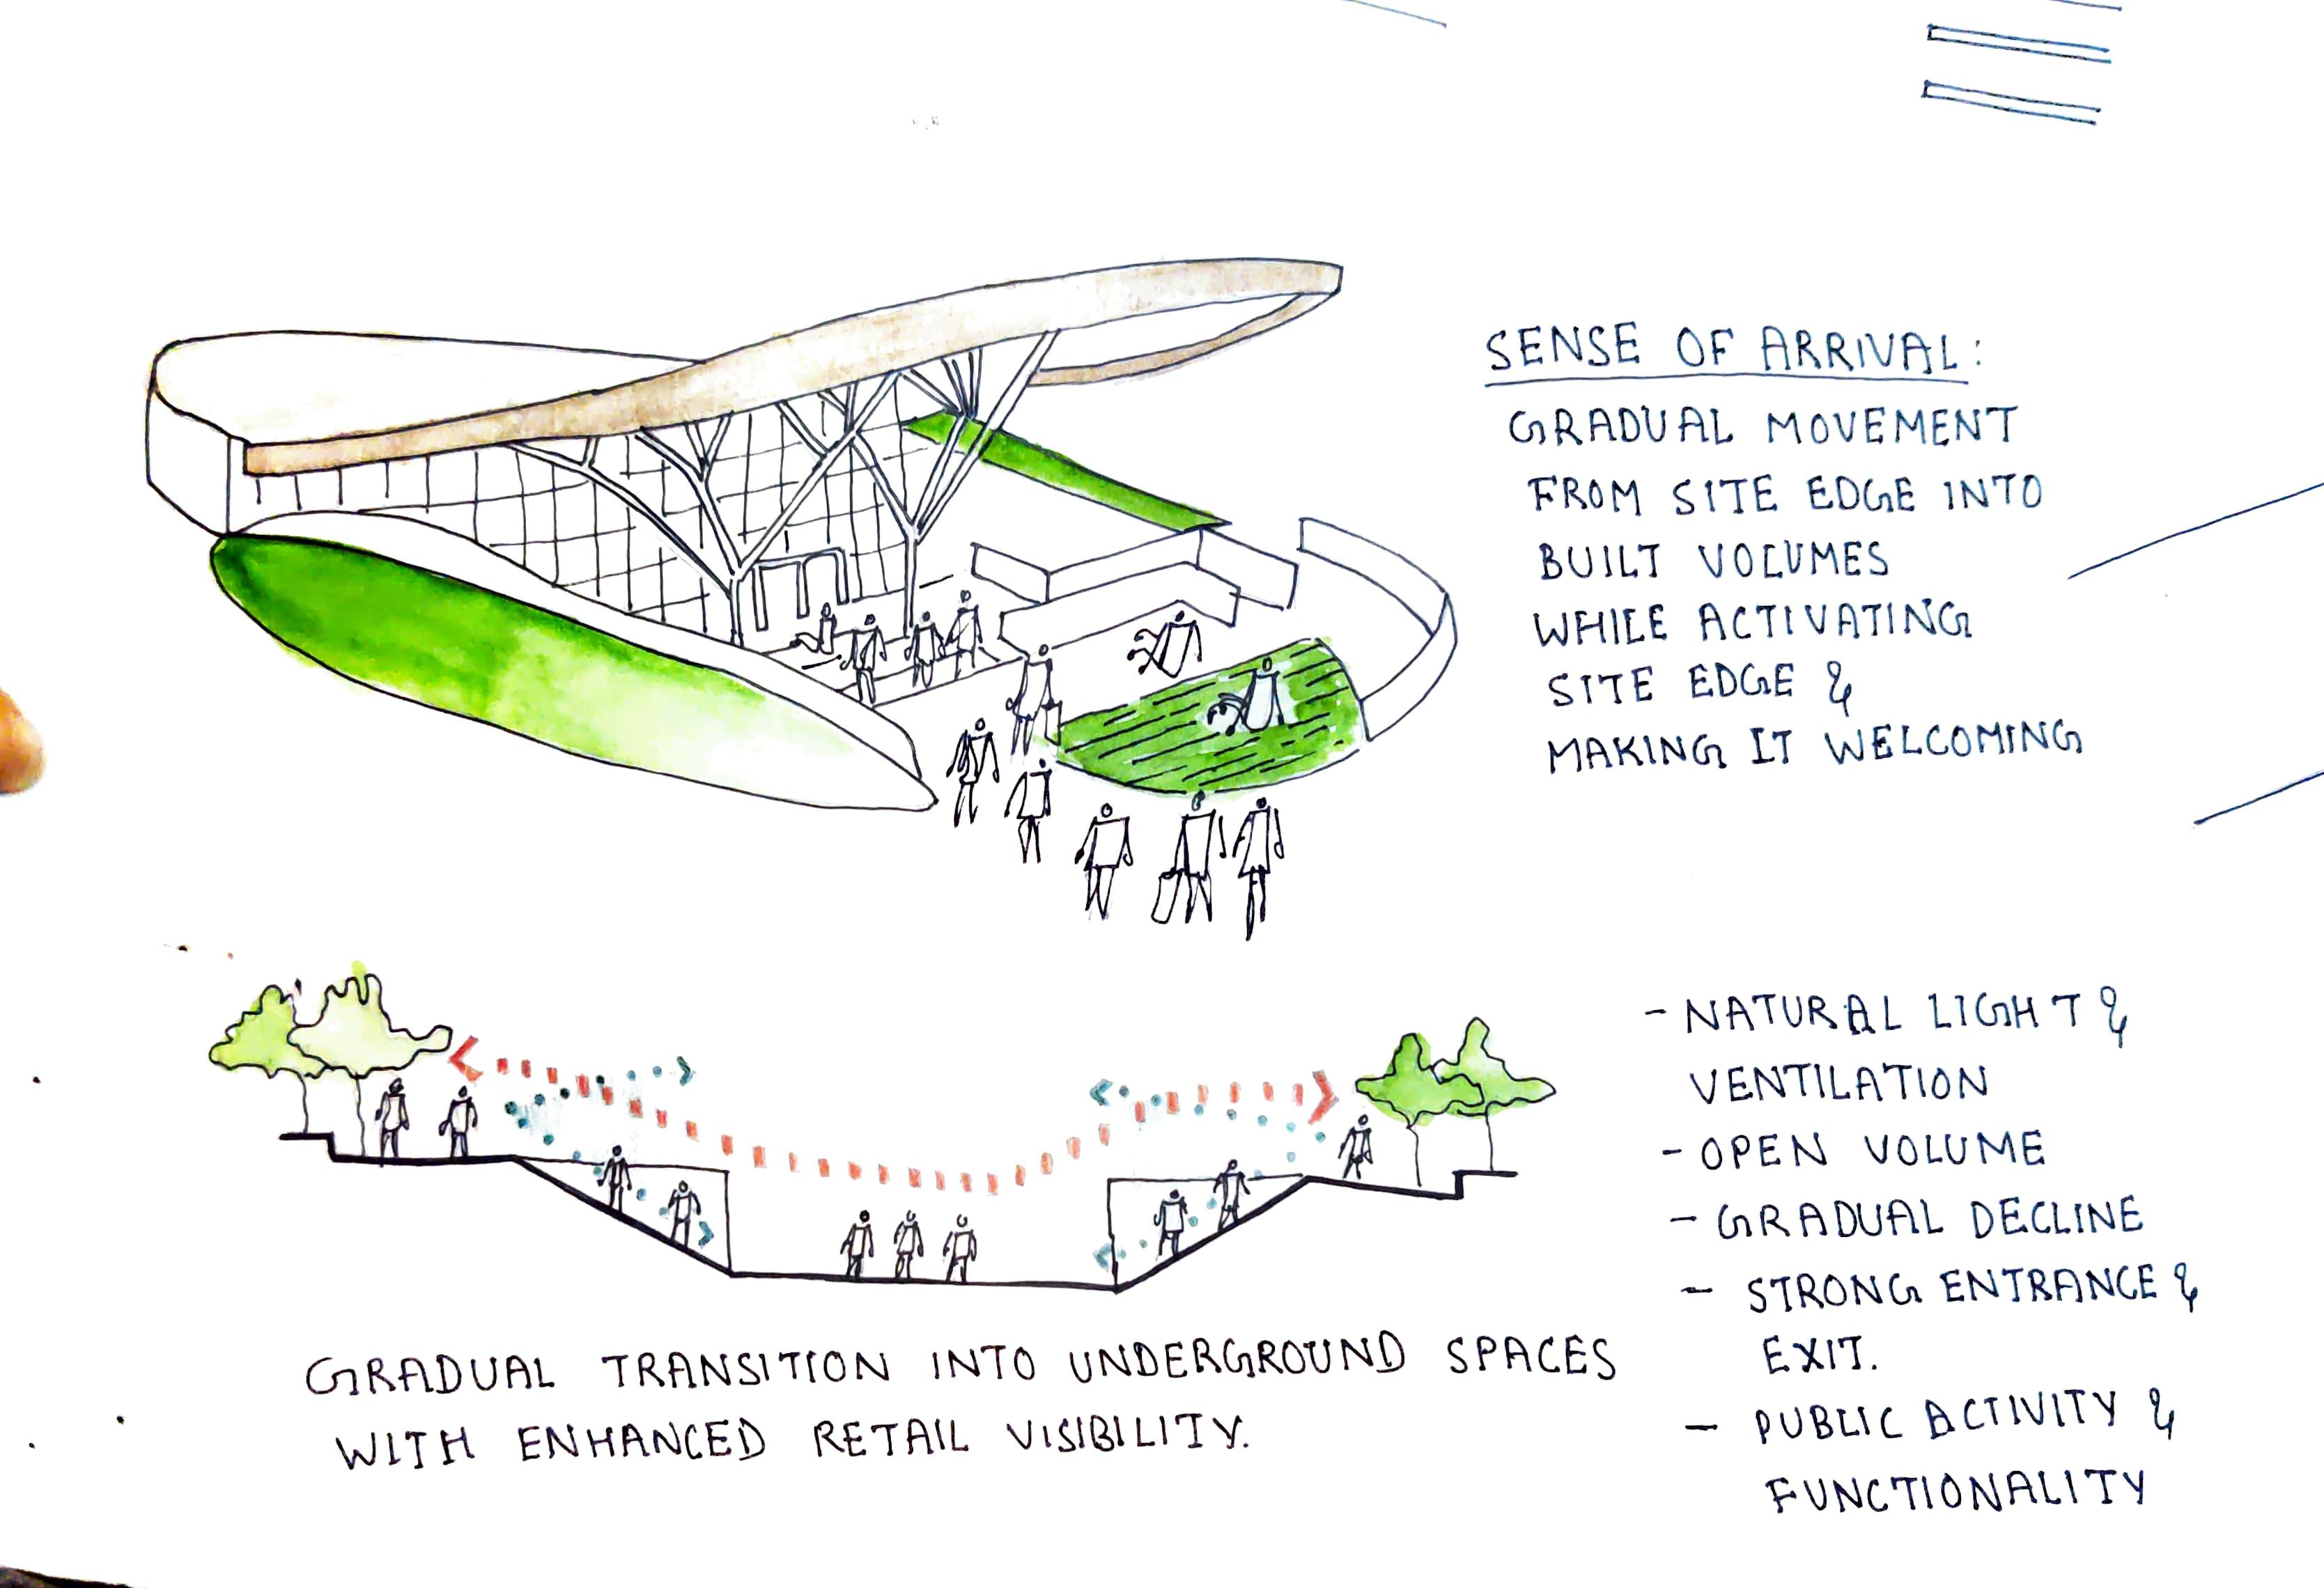 SENSE OF ARRIVAL:
GRADUAL MOVEMENT
FROM SITE EDGE INTO
BUILT VOLUMES
WHILE ACTIVATING
SITE EDGE &
MAKING IT WELCOMING
- NATURAL LIGHT &
VENTILATION
- OPEN VOLUME
- GRADUAL DECLINE
- STRONG ENTRANCE &
EXIT.
- PUBLIC ACTIVITY &
FUNCTIONALITY
GRADUAL TRANSITION INTO UNDERGROUND SPACES
WITH ENHANCED RETAIL VISIBILITY.